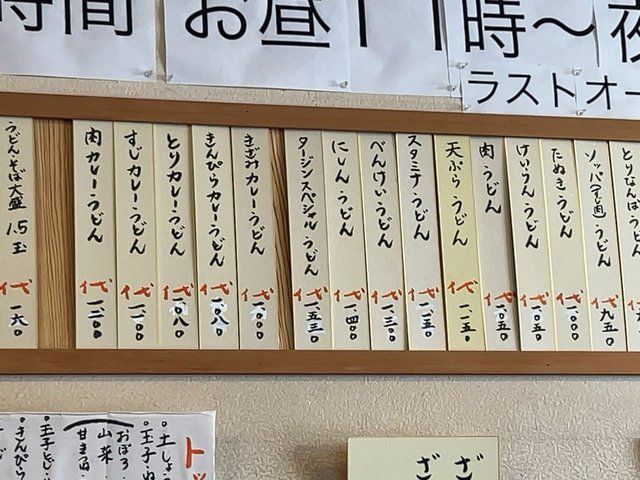 時間
お昼11時〜夜
ラストオー
とりなんばうどん 代
ソッパ(すじ肉)うどん 代九五〇
たぬきうどん 代一、〇〇〇
けいらんうどん 代一、〇五〇
肉うどん 代一、〇五〇
天ぷらうどん 代一、一五〇
スタミナうどん 代一、二五〇
べんけいうどん 代一、三〇〇
にしんうどん 代一、四〇〇
タージンスペシャルうどん 代一、五三〇
きざみカレーうどん 代一、〇〇〇
きんぴらカレーうどん 代一、〇八〇
とりカレーうどん 代一、〇八〇
すじカレーうどん 代一、一〇〇
肉カレーうどん 代一、二〇〇
うどん・そば大盛 1.5玉 代一六〇
ト
。土しょう
。玉子
おぼろ
山菜
甘きつね
。玉子とじ
。きんぴら
ざ
ざ